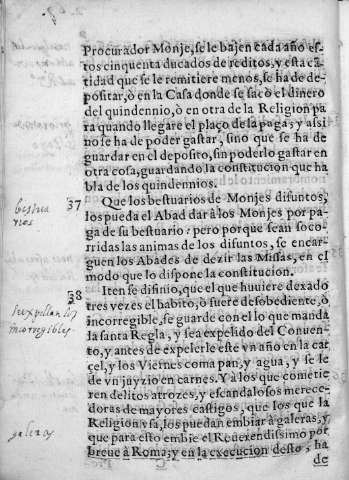 Procurador Monje, se le bajen cada año es-
tos cinquenta ducados de reditos, y esta cã-
tidad que se le remitiere menos, se ha de de-
positar, ò en la Casa donde se sacò el dinero
del quindennio, ò en otra de la Religion pa
ra quando llegare el plaço de la paga; y assi
no se ha de poder gastar, sino que se ha de
guardar en el deposito, sin poderlo gastar en
otra cosa, guardando la constitucion que ha
bla de los quindennios.
bestua
rios
37 Que los bestuarios de Monjes difuntos,
los pueda el Abad dar à los Monjes por pa-
ga de su bestuario: pero porque sean soco-
rridas las animas de los difuntos, se encar-
guen los Abades de dezir las Missas, en el
modo que lo dispone la constitucion.
38 Iten se difinio, que el que huuiere dexado
tres vezes el habito, ò fuere desobediente, ò
incorregible, se guarde con el lo que manda
la santa Regla, y sea expelido del Conuen-
to, y antes de expelerle este vn año en la car
çel, y los Viernes coma pan, y agua, y se le
de vn juyzio en carnes. Y à los que cometie
ren delitos atrozes, y escandalosos merece-
dores de mayores castigos, que los que la
Religion vsa, los puedan embiar à galeras, y
que para esto embie el Reuerendissimo por
breue à Roma; y en la execucion desto, ha
de
se expellan los
incorregibles
galeras